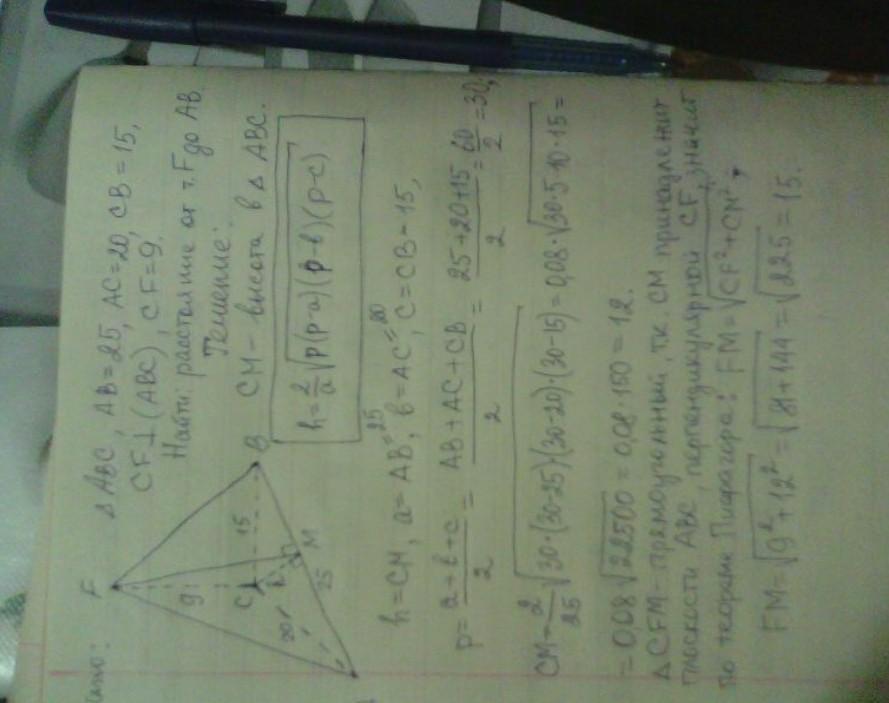 Дано:
Δ ABC, AB=25, AC=20, CB=15,
CF⊥(ABC), CF=9.
Найти: расстояние от т. F до AB.
Решение:
CM - высота в Δ ABC.
h = 2/a √p(p-a)(p-b)(p-c)
F
9
C
15
B
20
h
M
25
h=CM, a=AB=25, b=AC=20, c=CB=15,
p = a+b+c/2 = AB+AC+CB/2 = 25+20+15/2 = 60/2 = 30;
CM = 2/25 √30·(30-25)(30-20)·(30-15) = 0,08·√30·5·10·15 =
= 0,08 √22500 = 0,08·150 = 12.
Δ CFM - прямоугольный, т.к. CM принадлежит
плоскости ABC, перпендикулярной CF, значит
по теореме Пифагора: FM=√CF²+CM²,
FM=√9²+12² = √81+144 = √225 = 15.